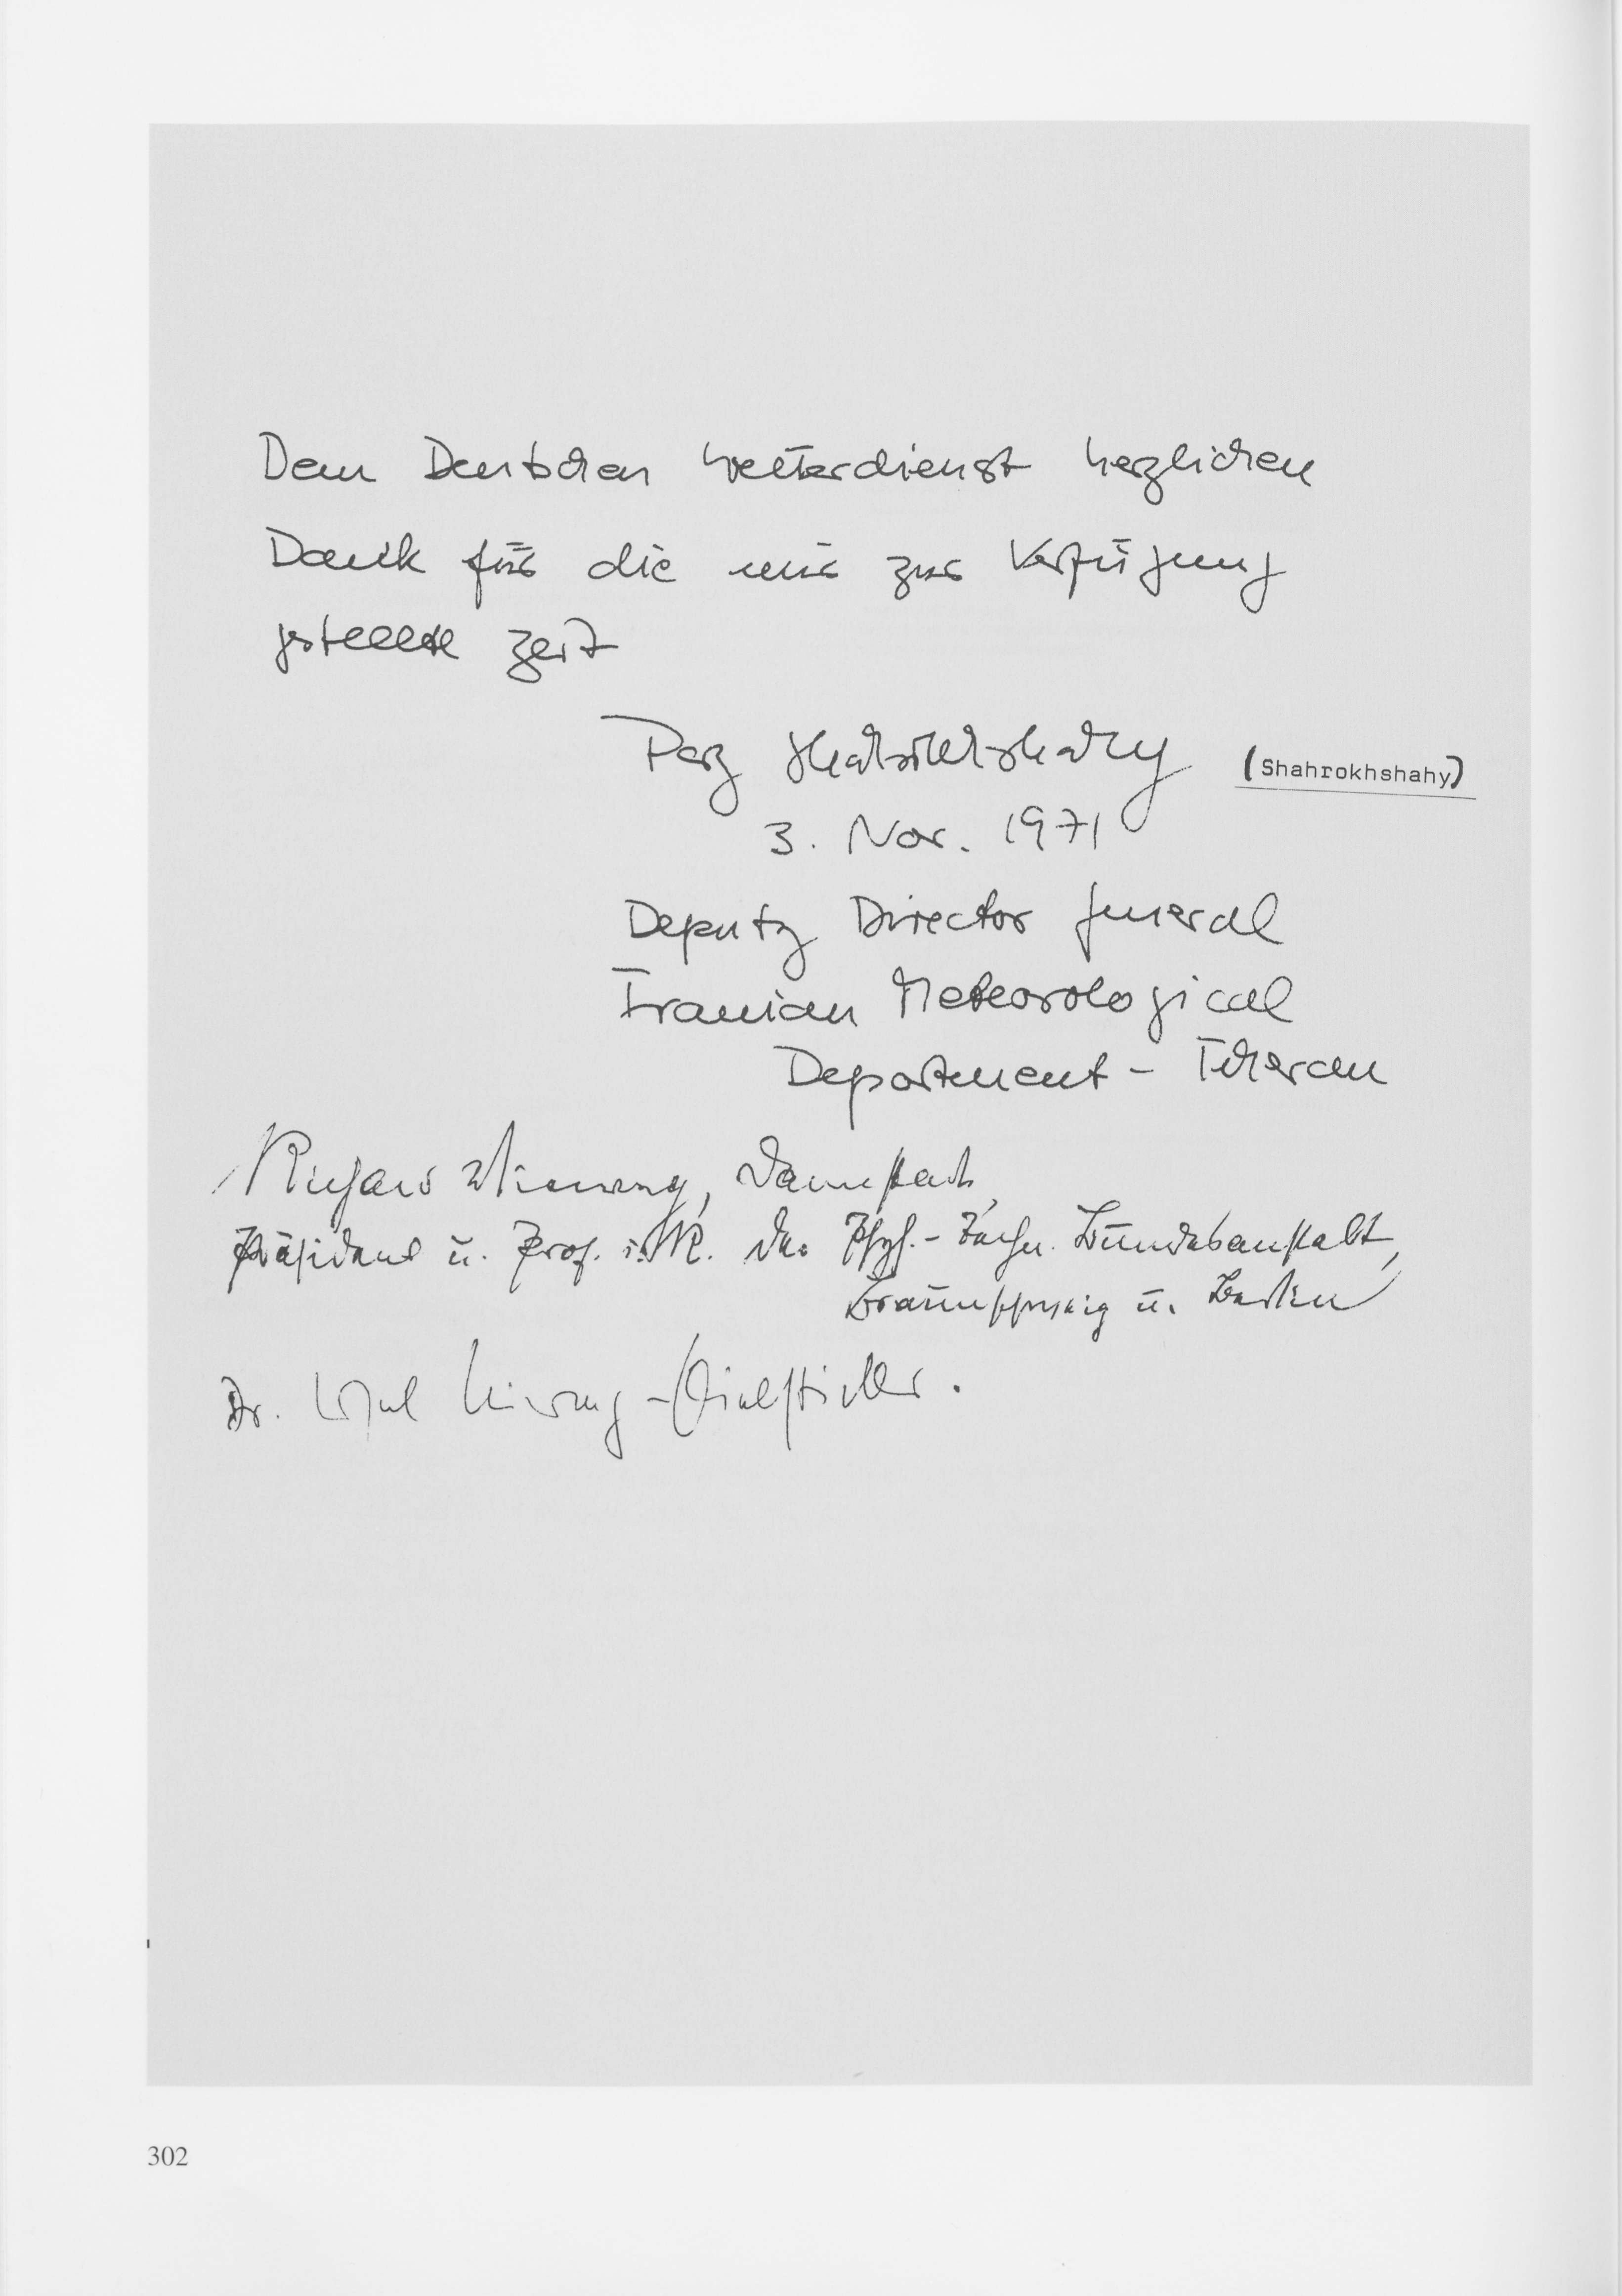 Dem Deutschen Wetterdienst herzlichen
Dank für die mir zur Verfügung
gestellte Zeit
Shahrokhshahy (Shahrokhshahy)
3. Nov. 1971
Deputy Director General
Iranian Meteorological
Department - Teheran
Richard Vieweg, Darmstadt,
Präsident u. Prof. i. R. der Phys.-Techn. Bundesanstalt,
Braunschweig u. Berlin
Dr. Vieweg-
302